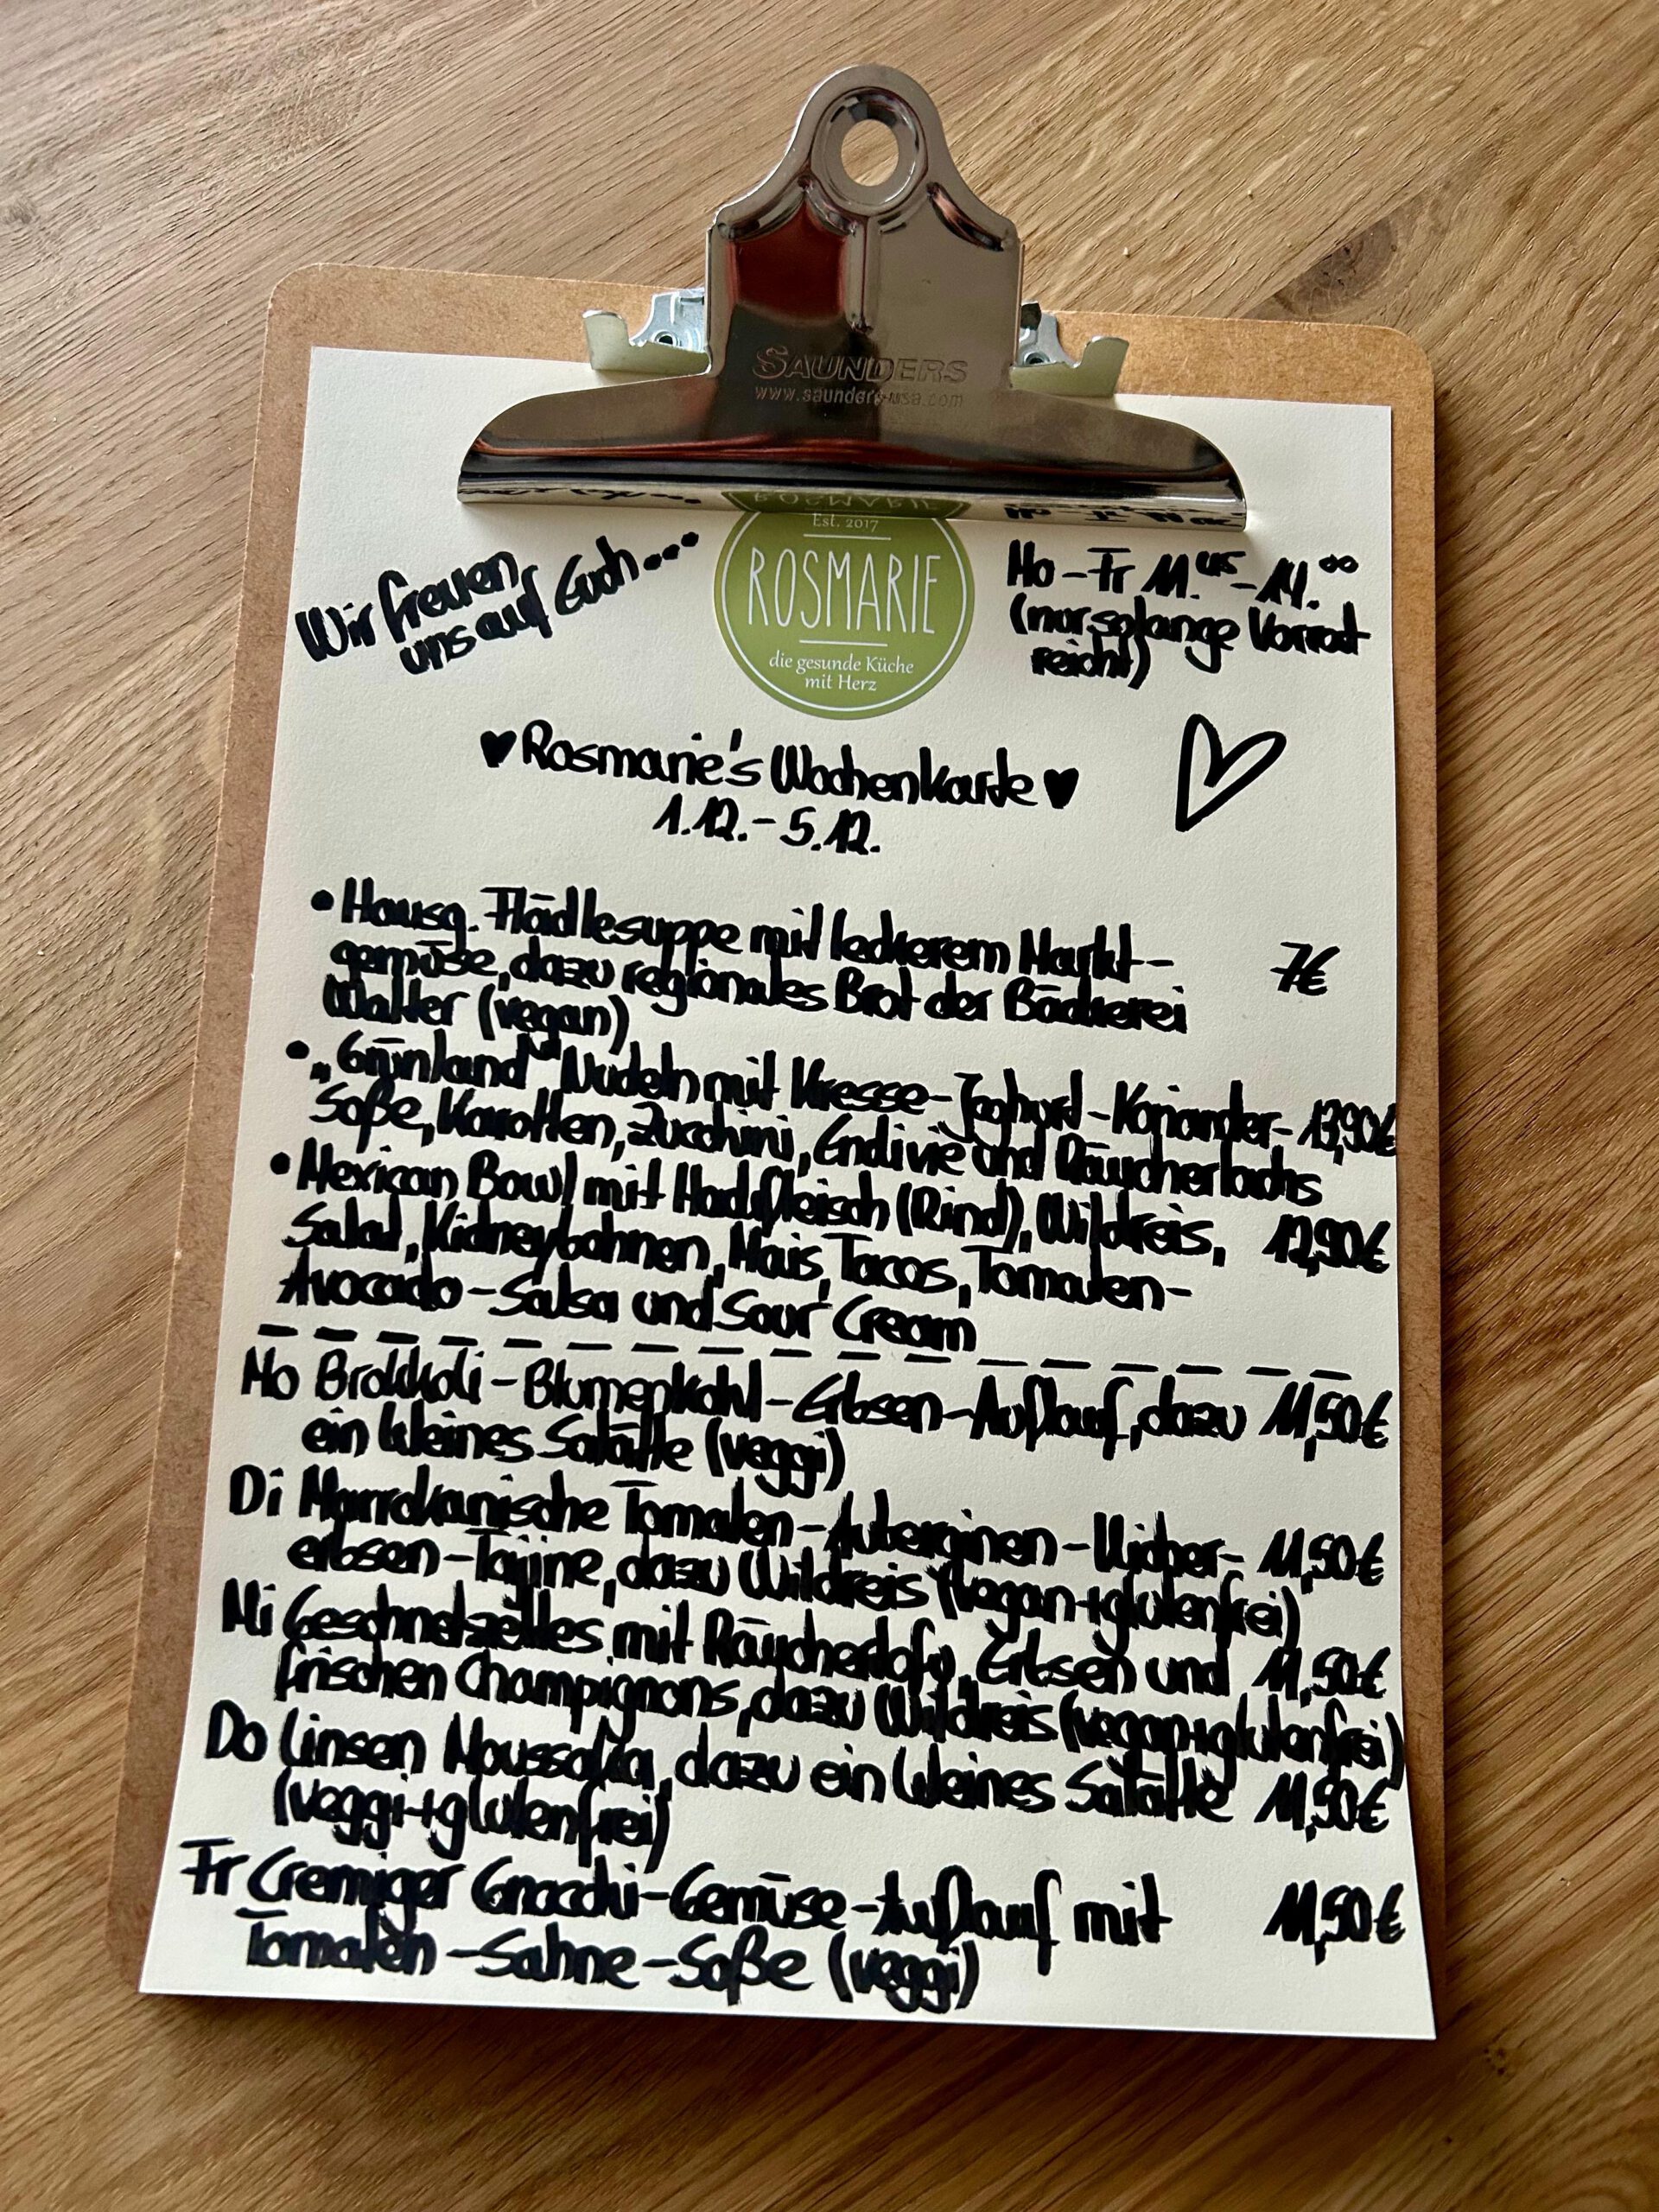 SAUNDERS
www.saunders-usa.com
Est. 2017
ROSMARIE
die gesunde Küche
mit Herz
Wir freuen
uns auf Euch...
Mo-Fr 11.45-14.00
(nur solange Vorrat
reicht)
♥Rosmarie's Wochenkarte♥
1.12.-5.12.
• Hausg. Flädlesuppe mit leckerem Markt-
gemüse, dazu regionales Brot der Bäckerei 7€
Walter (vegan)
• „Grünland" Nudeln mit Kresse-Joghurt-Koriander- 13,90€
Soße, Karotten, Zucchini, Endivie und Räucherlachs
• Mexican Bowl mit Hackfleisch (Rind), Wildreis, 12,90€
Salat, Kidneybohnen, Mais, Tacos, Tomaten-
Avocado-Salsa und Sour Cream
Mo Brokkoli-Blumenkohl-Erbsen-Auflauf, dazu 11,50€
ein kleines Salätle (veggi)
Di Marrokanische Tomaten-Auberginen-Kicher- 11,50€
erbsen-Tajine, dazu Wildreis (vegan+glutenfrei)
Mi Geschnetzeltes mit Räuchertofu, Erbsen und 11,50€
frischen Champignons, dazu Wildreis (vegan+glutenfrei)
Do Linsen Moussaka, dazu ein kleines Salätle 11,50€
(veggi+glutenfrei)
Fr Cremiger Gnocchi-Gemüse-Auflauf mit 11,50€
Tomaten-Sahne-Soße (veggi)